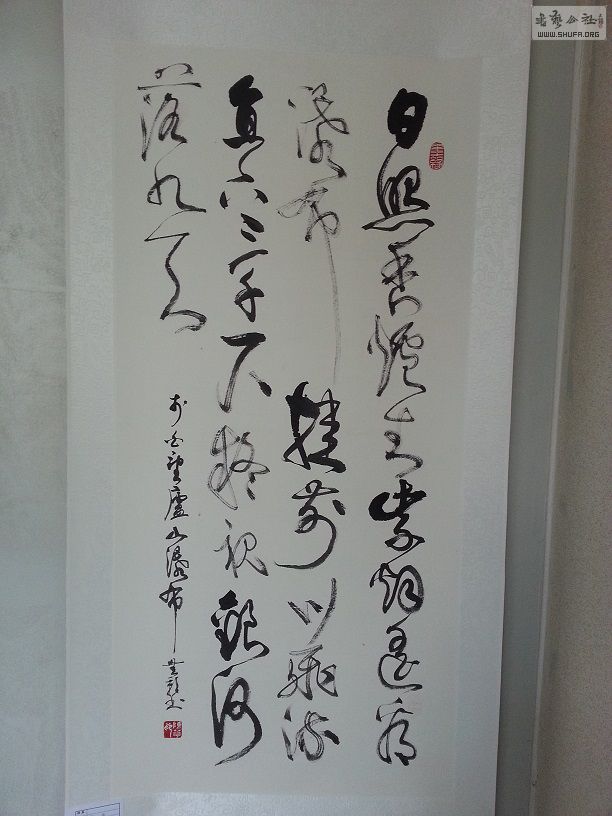 日照香炉生紫烟遥看
瀑布挂前川飞流
直下三千尺疑视银河
落九天
李白望廬山瀑布
书艺公社
WWW.SHUFA.ORG